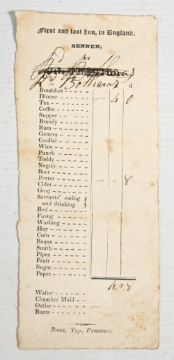 First and last Inn, in England,
SENNEN,
Breakfast
Dinner 4 0
Tea
Coffee
Supper
Brandy
Rum
Geneva
Cordial
Wine
Punch
Toddy
Negus
Beer
Porter 8
Cider
Grog
Servants' eating
and drinking
Bed
Firing
Washing
Hay
Corn
Beans
Smith
Pipes
Fruit
Sugar
Paper
Waiter
Chamber Maid
Ostler
Boots
Rowe, Typ. Penzance.